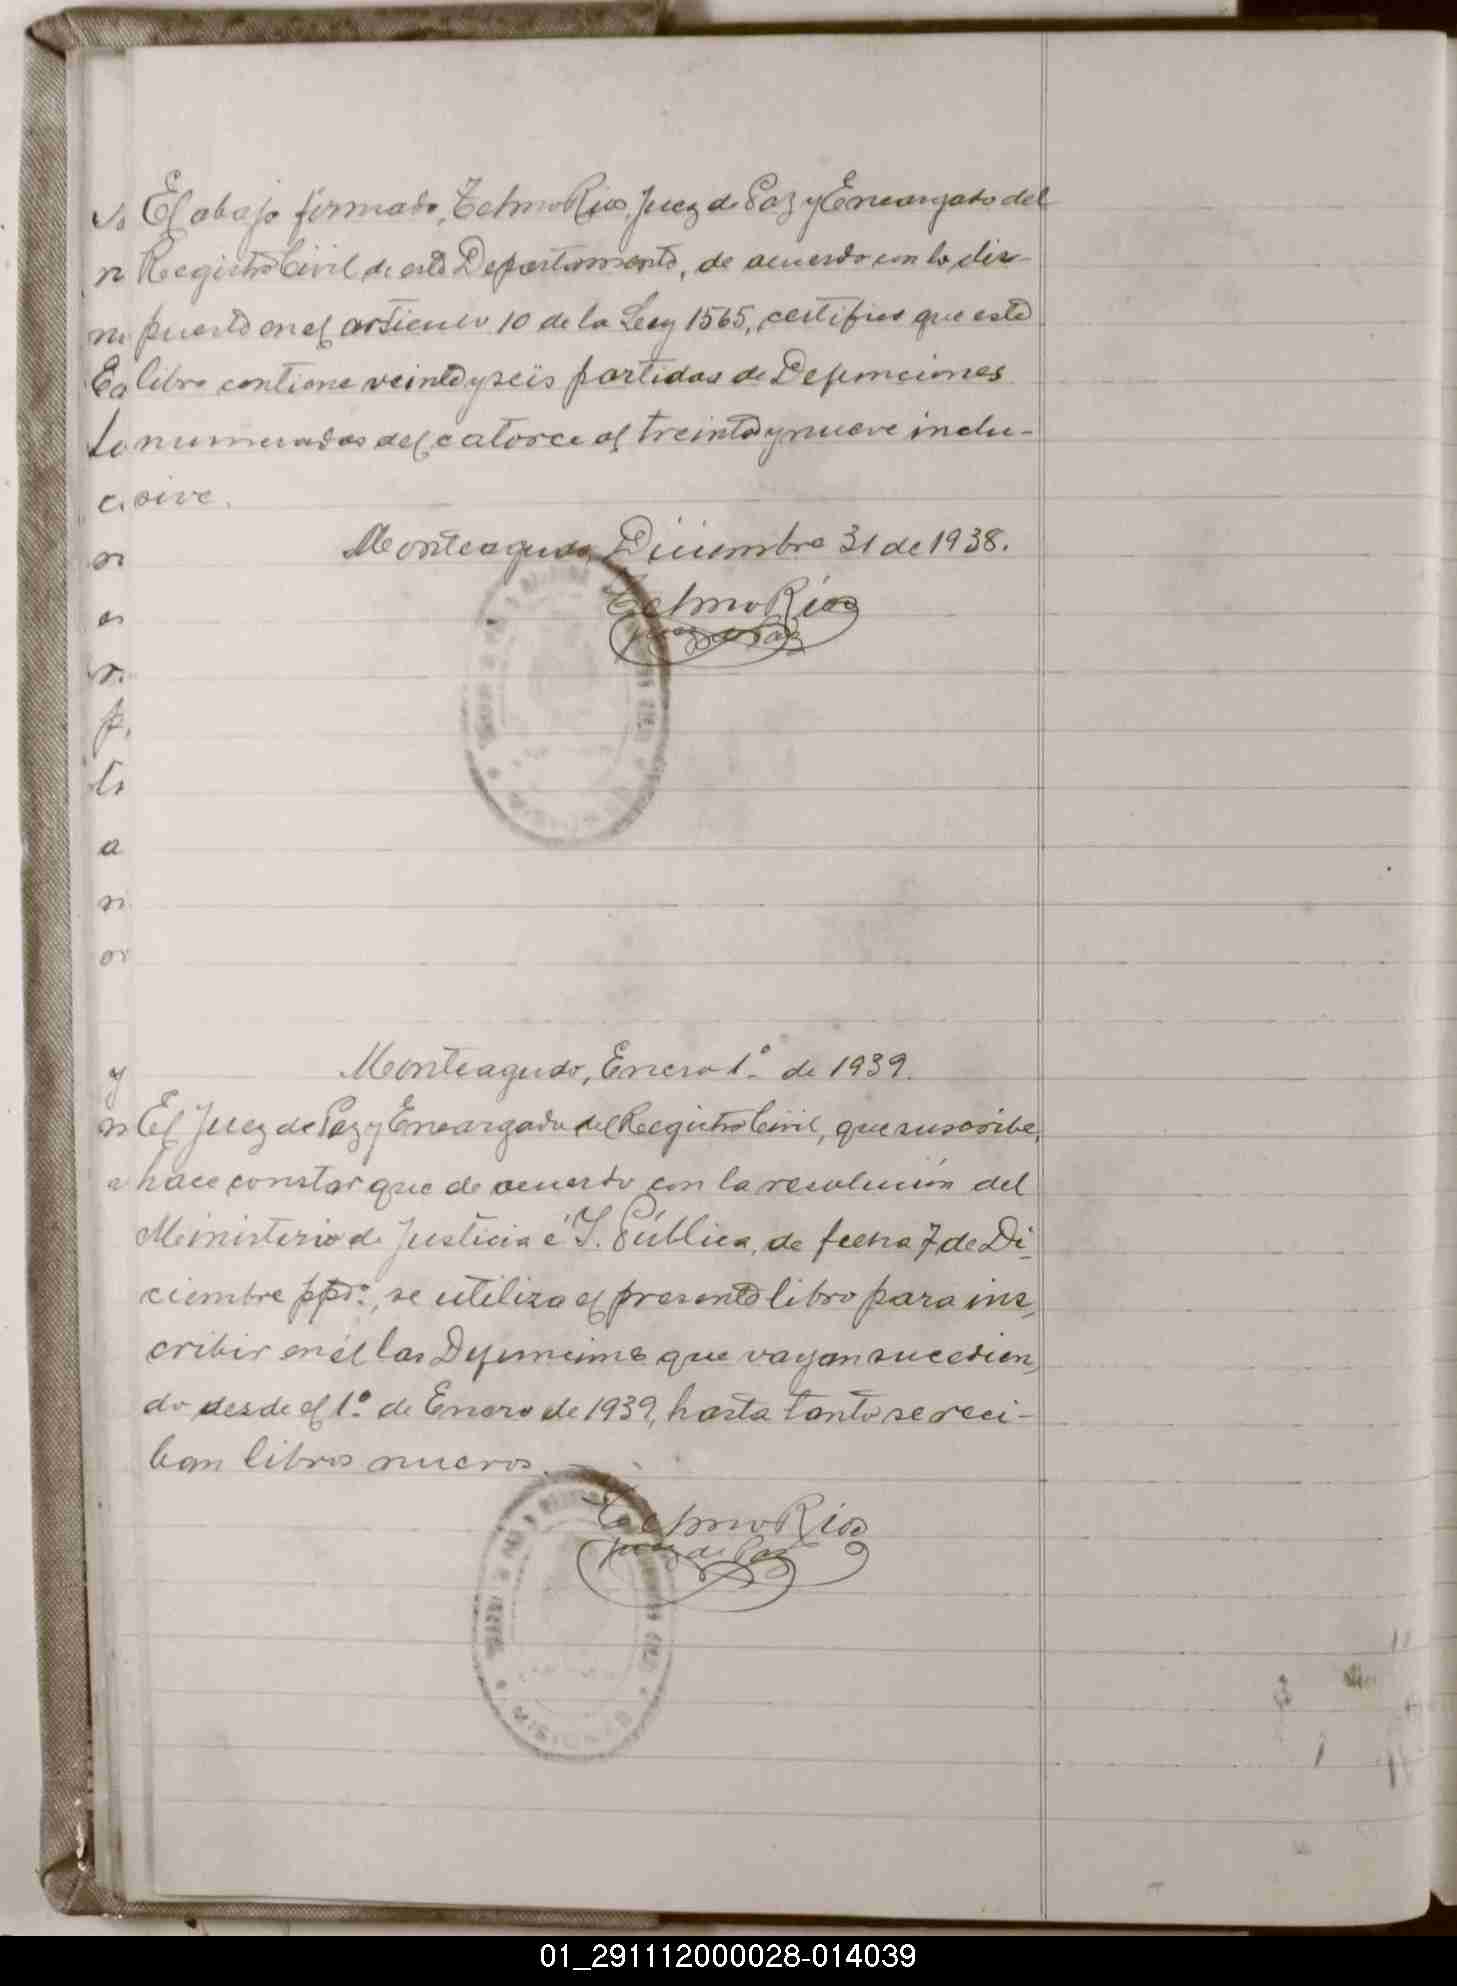 El abajo firmado, Telmo Ríos, Juez de Paz y Encargado del
Registro Civil de este Departamento, de acuerdo con lo dis-
puesto en el artículo 10 de la Ley 1565, certifico que este
libro contiene veinte y seis partidas de Defunciones
numeradas del catorce al treinta y nueve inclu-
sive.
Monteagudo, Diciembre 31 de 1938.
Telmo Ríos
Juez de Paz
MISIONES
Monteagudo, Enero 1º de 1939.
El Juez de Paz y Encargado del Registro Civil, que suscribe,
hace constar que de acuerdo con la resolución del
Ministerio de Justicia é I. Pública, de fecha 7 de Di-
ciembre ppdº., se utiliza el presente libro para ins-
cribir en él las Defunciones que vayan sucedien-
do desde el 1º de Enero de 1939, hasta tanto se reci-
ban libros nuevos.
Telmo Ríos
Juez de Paz
MISIONES
01_291112000028-014039